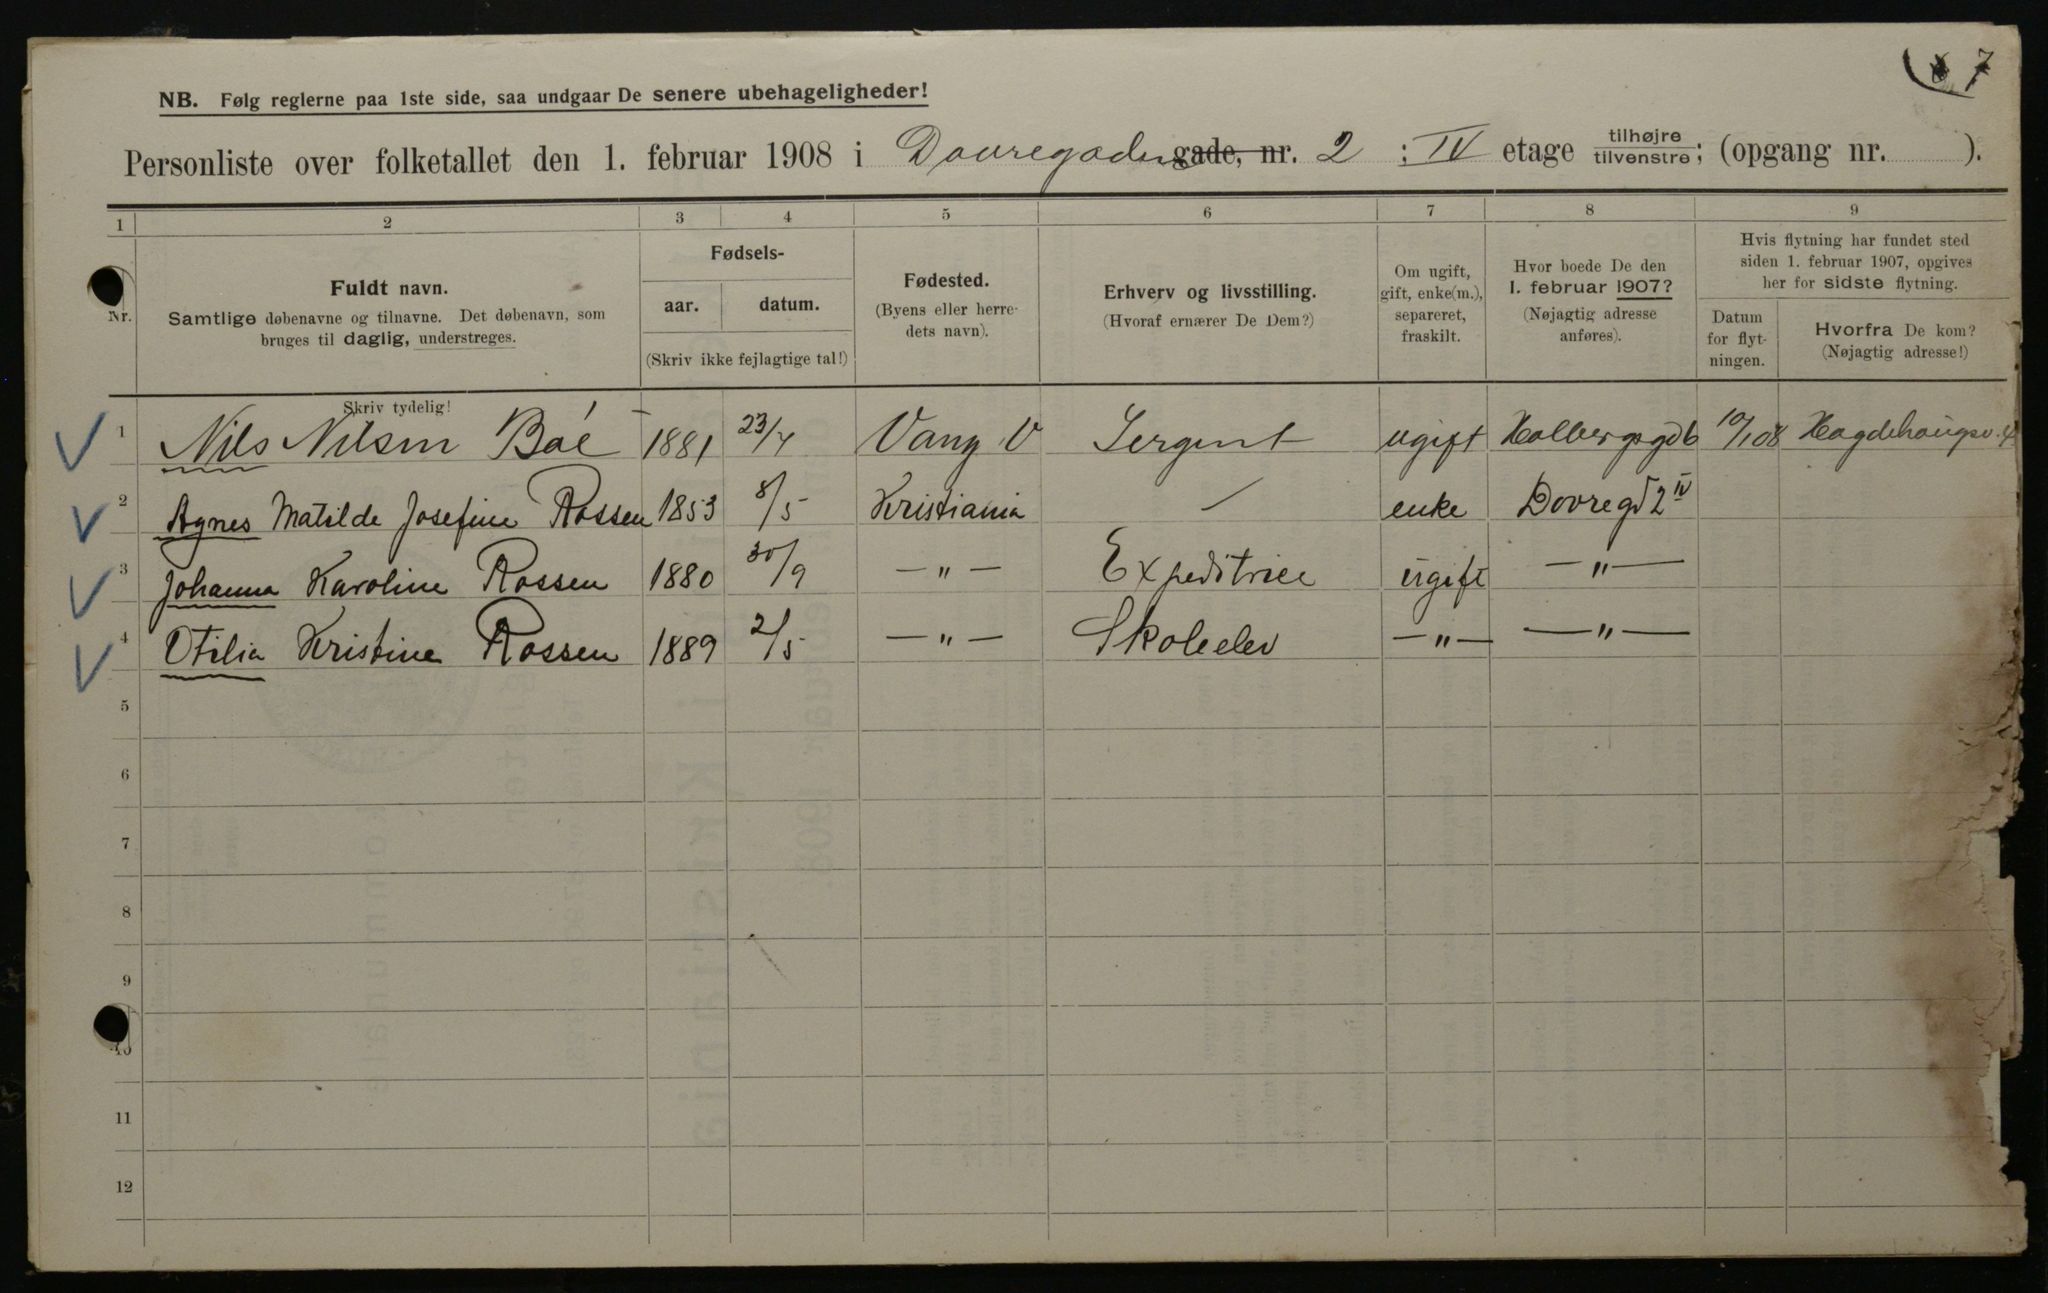 7
NB. Følg reglerne paa 1ste side, saa undgaar De senere ubehageligheder!
Personliste over folketallet den 1. februar 1908 i Dovregaden gade, nr. 2 : IV etage tilhøjre tilvenstre; (opgang nr. ).
1 2 3 4 5 6 7 8 9
Nr.
Fuldt navn.
Samtlige døbenavne og tilnavne. Det døbenavn, som
bruges til daglig, understreges.
Skriv tydelig!
Fødsels-
aar. datum.
(Skriv ikke fejlagtige tal!)
Fødested.
(Byens eller herre-
dets navn).
Erhverv og livsstilling.
(Hvoraf ernærer De Dem?)
Om ugift,
gift, enke(m.),
separeret,
fraskilt.
Hvor boede De den
1. februar 1907?
(Nøjagtig adresse
anføres).
Hvis flytning har fundet sted
siden 1. februar 1907, opgives
her for sidste flytning.
Datum
for flyt-
ningen.
Hvorfra De kom?
(Nøjagtig adresse!)
1 Nils Nilsen Boé 1881 23/4 Vang V Sergent ugift Holbergsgd 6 10/1 08 Hagdehougsv. 4
2 Agnes Matilde Josefine Rossen 1853 8/5 Kristiania — enke Dovregd 2 IV
3 Johanna Karoline Rossen 1880 30/9 — " — Expeditrice ugift — " —
4 Otilia Kristine Rossen 1889 2/5 — " — Skoleelev — " — — " —
5
6
7
8
9
10
11
12